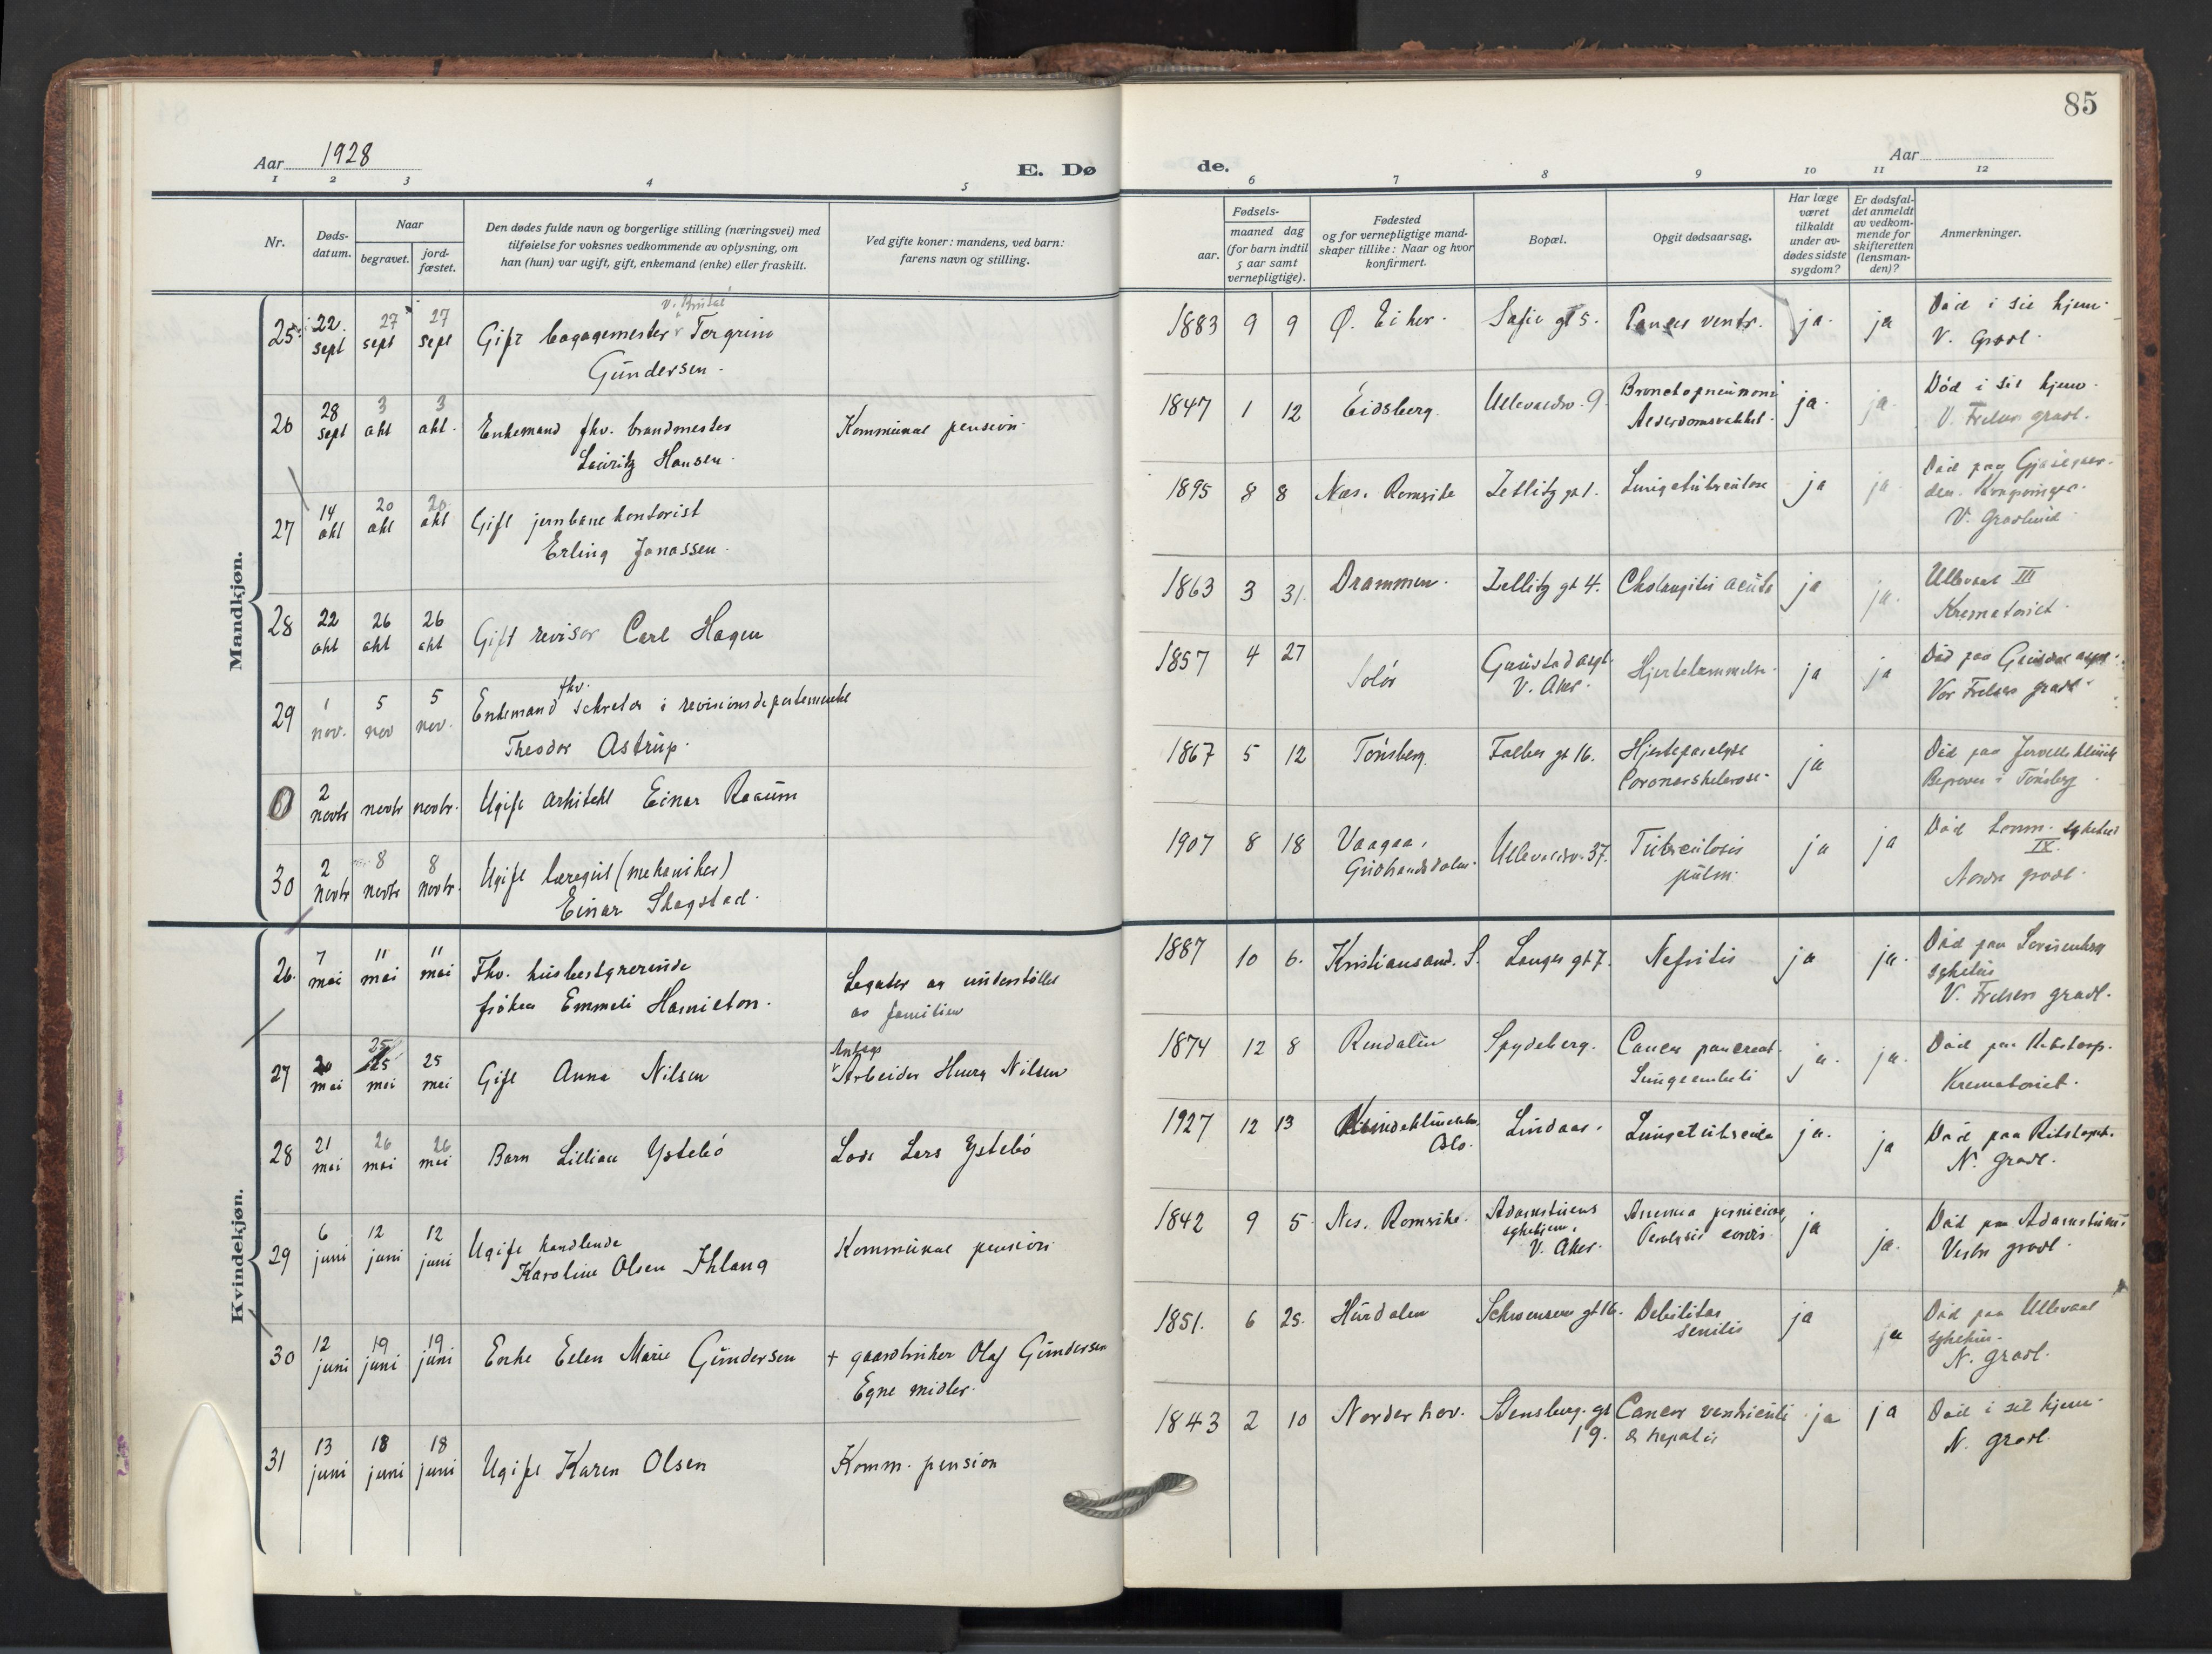 85
Aar 1928
E. Dø
de.
Aar
1 2 3 4 5 6 7 8 9 10 11 12
Nr.
Døds-
datum.
Naar
begravet.
jord-
fæstet.
Den dødes fulde navn og borgerlige stilling (næringsvei) med
tilføielse for voksnes vedkommende av oplysning, om
han (hun) var ugift, gift, enkemand (enke) eller fraskilt.
Ved gifte koner: mandens, ved barn:
farens navn og stilling.
Fødsels-
aar.
maaned dag
(for barn indtil
5 aar samt
vernepligtige).
Fødested
og for vernepligtige mand-
skaper tillike: Naar og hvor
konfirmert.
Bopæl.
Opgit dødsaarsag.
Har læge
været
tilkaldt
under av-
dødes sidste
sygdom?
Er dødsfal-
det anmeldt
av vedkom-
mende for
skifteretten
(lensman-
den)?
Anmerkninger.
Mandkjøn.
25 22 sept 27 sept 27 sept Gift bagagemester Torgrim
Gundersen.
1883 9 9 Ø. Eiker. Sofie gt 5. Cancer ventr. ja. ja Død i sit hjem.
V. Gravl.
26 28 sept 3 okt 3 okt. Enkemand fhv. brandmester
Lauritz Hansen.
Kommunal pension.
1847 1 12 Eidsberg. Ullevaalsv. 9. Bronchopneumoni
Alderdomssvakhet. ja. ja. Død i sit hjem.
V. Frelsers gravl.
27 14 okt 20 okt 20 okt Gift jernbanekontorist
Erling Jonassen.
1895 8 8 Nes. Romerike Zetlitz gt 1. Lungetuberkulose ja ja
V. Gravlund
28 22 okt 26 okt 26 okt Gift revisor Carl Hagen
1863 3 31. Drammen. Zetlitz gt 4. Cholangitis acuta ja ja. Ullevaal III
Krematoriet.
29 1 nov. 5 nov 5 nov. Enkemand fhv. sekretær i revisionsdepartementet
Theodor Astrup.
1857 4 27 Solør Gaustad asyl.
V. Aker. Hjertelammelse. ja ja Død paa Gaustad asyl.
Vor Frelsers gravl.
0 2 novbr novbr novbr. Ugift arkitekt Einar Raaum
1867 5 12 Tønsberg. Falbes gt 16. Hjerteparalyse
Coronarsklerose. ja
Begraves i Tønsberg.
30 2 novbr 8 novbr 8 novbr. Ugift læregut (mekaniker)
Einar Skogstad.
1907 8 18 Vaagaa,
Gudbrandsdalen. Ullevaalsv. 37. Tuberculosis
pulm. ja ja Død
IX.
Nordre gravl.
Kvindekjøn.
26. 7 mai 11 mai 11 mai Fhv. husbestyrerinde
frøken Emmeli Hamilton.
Legater og understøttet
av familien
1887 10 6. Kristiansand. S. Langes gt 7. Nefritis ja ja. Død paa Lovisenberg
sykehus
V. Frelsers gravl.
27 20 mai 25 mai 25 mai Gift Anna Nilsen
Anlegs
Arbeider Henry Nilsen
1874 12 8 Rendalen Spydeberg. Cancer pancreat.
Lungeemboli ja. ja. Død paa Rikshosp.
Krematoriet.
28 21 mai 26 mai 26 mai Barn Lillian Ystebø
Lods Lars Ystebø
1927 12 13 Kvindeklinikken.
Oslo. Lindaas. Lungetuberkulo ja. ja Død paa Rikshospit.
N. Gravl.
29 6 juni 12 juni 12 juni Ugift handlende
Karoline Olsen Ihlang
Kommunal pension
1842 9 5 Nes. Romerike. Adamstuens
sykehjem.
V. Aker. Anemia perniciosa,
Paralysis cordis ja ja. Død paa Adamstuen
Vestre gravl.
30 12 juni 19 juni 19 juni Enke Ellen Marie Gundersen
+ gaardbruker Olaf Gundersen
Egne midler.
1851. 6 25. Hurdalen Schwensens gt 16. Debilitas
senilis ja ja Død paa Ullevaal
sykehus.
N. gravl.
31 13 juni 18 juni 18 juni Ugift Karen Olsen
Komm. pension
1843 2 10 Norderhov. Stensberg. gt
19. Cancer ventriculi
& hepatis ja ja Død i sit hjem.
N. gravl.